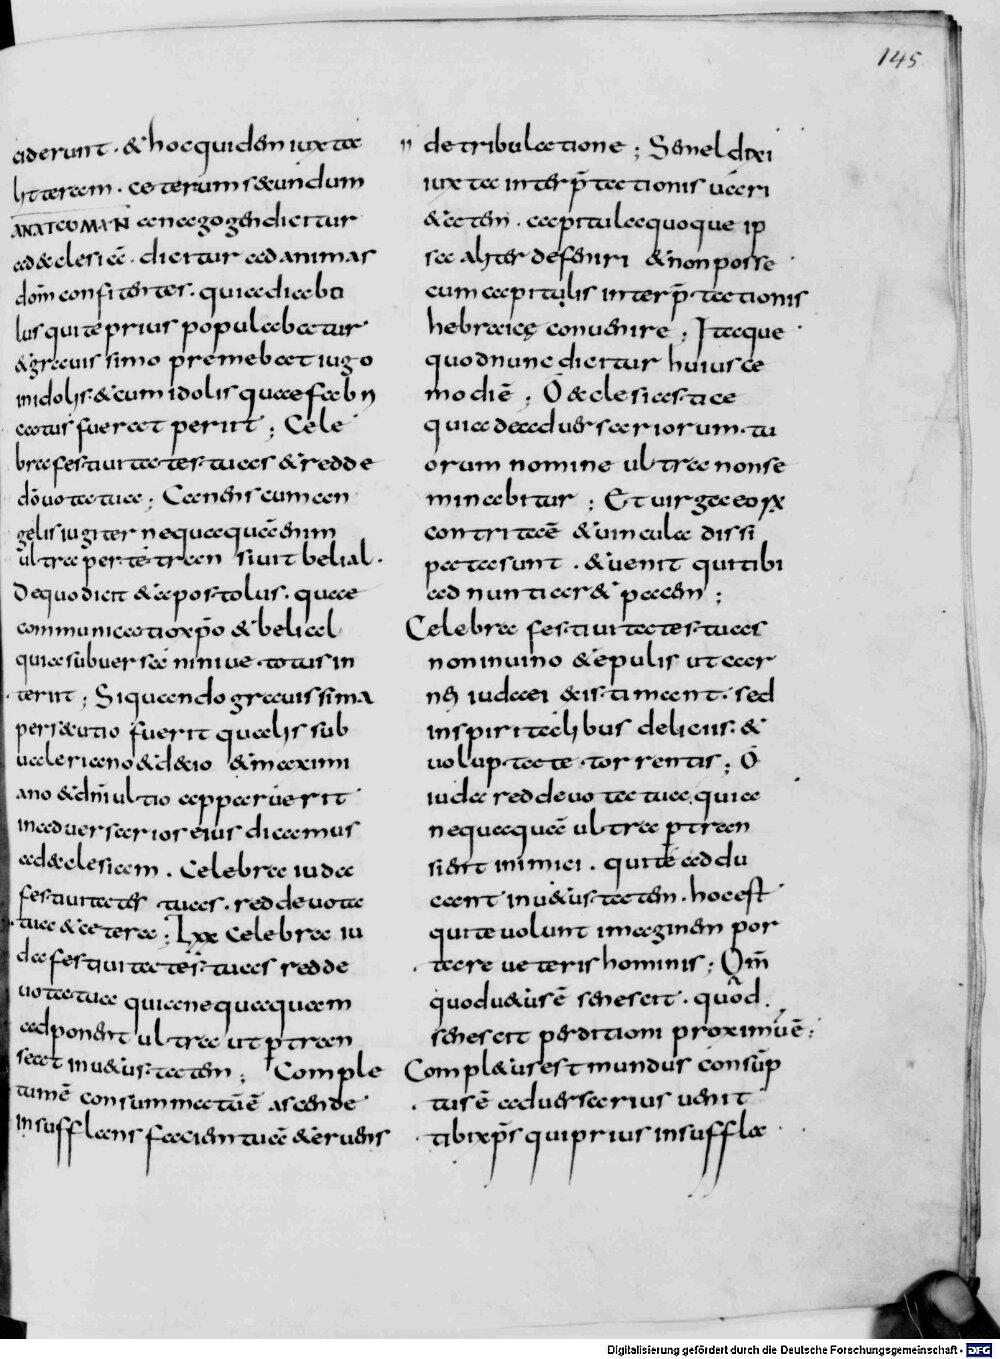 145
ciderunt · & hoc quidem iuxta
litteram · ceterum secundum
ΑΝΑΓΩΜΕΝ anagogen dicitur
ad eclesiā · dicitur ad animas
dom̄ confitentes · quia diabo
lus qui te prius populabatur
& grauissimo premebat iugo
in idolis · & cum idolis quae fab͞n
catus fuerat periit ; Cele
bra festiuitates tuas & redde
dō uota tua ; Canens cum an
gelis iugiter nequaquā enim
ultra per te transiuit belial ·
De quo dicit & apostolus · quae
communicatio xp̄o & belial
quia subuersa niniue totus in
teriit ; Si quando grauissima
persecutio fuerit qualis sub
ualeriano & decio & maximi
ano & dn̄i ultio apparuerit
in aduersarios eius dicamus
ad eclesiam . Celebra iuda
festiuitates tuas · redde uota
tua & cetera ; Lxx Celebra iu
da festiuitates tuas redde
uota tua quia nequaquam
adponent ultra ut ꝑtrean
seat in uetustatem ; Comple
tum ē consummatū ē ascende
insufflans faciem tuā & eruens
de tribulatione ; Semel dixi
iuxta interp̄tationis uari
&atem · capitula quoque ip
sa aliter defeniri & non posse
cum capitulis interp̄tationis
hebraicę conuenire ; Itaque
quod nunc dicitur huiusce
modi ē ; Ó eclesiastice
quia de aduersariorum tu
orum nomine ultra non se
minabitur ; Et uirga eorx
contrita ē & uincula dissi
pata sunt . & uenit qui tibi
ad nuntiar& pacem ;
Celebra festiuitates tuas
non in uino & epulis ut car
nem iudaei & istimant · sed
in spiritalibus deliciis · &
uoluptate torrentis ; Ó
iuda redde uota tua quia
nequaquā ultra ꝑtrean
sient inimici . qui te addu
cant in uetustatem · hoc est
qui te uolunt imaginem por
tare ueteris hominis ; Om̄
quod uetus ē senescit · quod
senescit perditioni proximū ē ;
Completus est mundus consūp
tus ē aduersarius uenit
tibi xp̄s qui prius insuffla
Digitalisierung gefördert durch die Deutsche Forschungsgemeinschaft - DFG